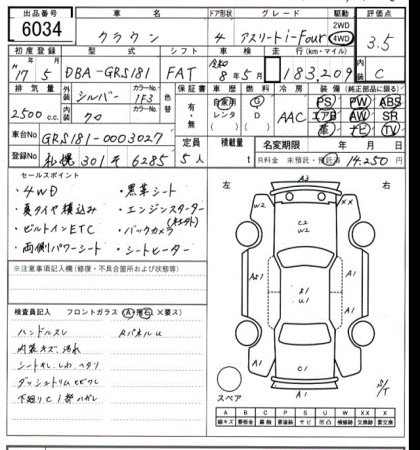 出品番号 車名 ドア形状 グレード 駆動 評価点
6034 クラウン 4 アスリートi-Four 2WD 4WD 3.5
初度登録 型式 シフト 車検 走行(km・マイル) 内装
H17 5 DBA-GRS181 FAT 8年5月 183,209 C
排気量 外装 シルバー カラーNo. 1F3 色替 保証書 車歴 燃料 冷房 装備 (純正部品に限る)
2500 c.c. 内装 クロ カラーNo. 有・無 自家用 レンタ G D AAC PS PW ABS
エアB AW SR
革 ナビ TV
車台No GRS181-0003027
定員 積載量 名変期限 年 月 日
登録No 札幌 301 6285 5人 t R料金 未預託・預託済 14,250円
セールスポイント
・4WD ・黒革シート
・夏タイヤ積込み ・エンジンスターター
・ビルトインETC ・バックカメラ
・両側パワーシート ・シートヒーター
※注意事項記入欄(修復・不具合箇所および状態)
検査員記入 フロントガラス (A・飛石・X要ス)
ハンドルスレ Rパネル U
内装キズ、汚れ
シートオし、しわ、ヘタリ
ダッシュトリムヒビワレ
下廻りC1部ハガレ
左 右
A3
W2 XX
C2
W2
A2 1 A1
A2
U1
A1 A1
C1
A1
スペア
A B C P S U W X XX
線キズ 要板金 腐食 要塗装 サビ 凹凸 補修跡 要交換 交換跡